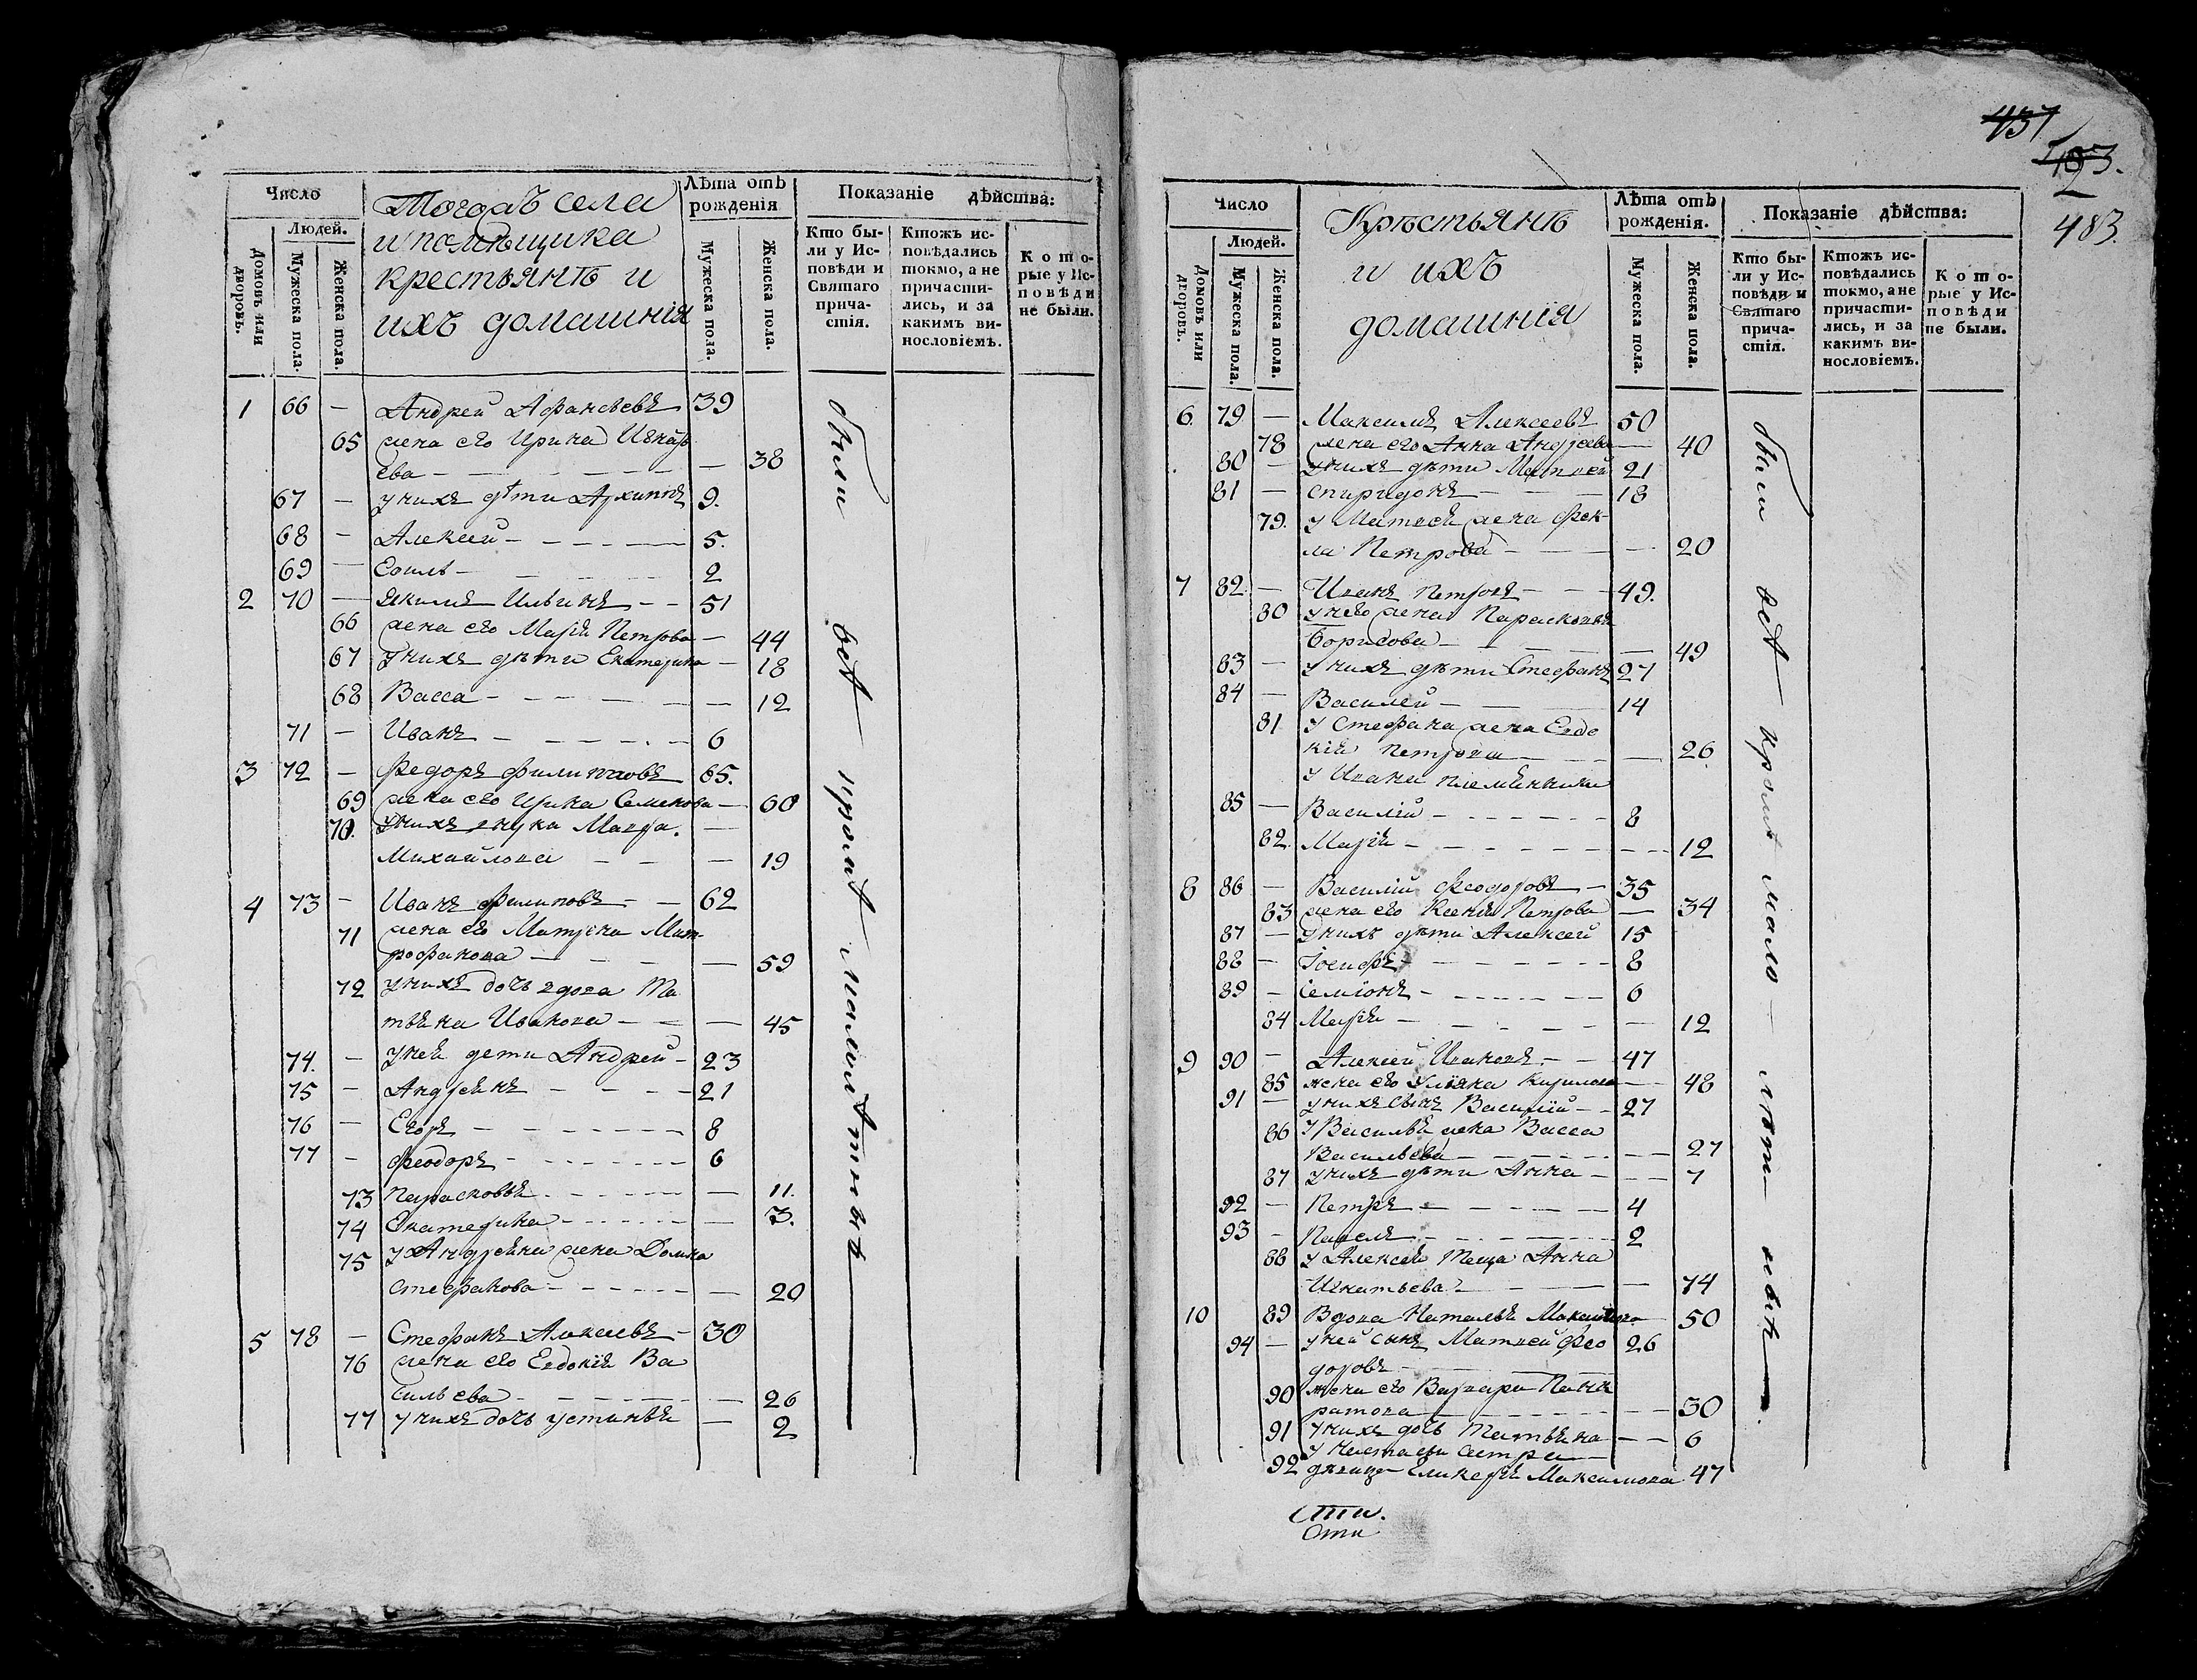 Число
Людей.
Домовъ или дворовъ.
Мужеска пола.
Женска пола.
Тогожъ села
и помѣщика
крестьянѣ и
ихъ домашнія
Лѣта отъ рожденія
Мужеска пола.
Женска пола.
Показаніе дѣйства:
Кто бы-
ли у Ис-
повѣди и
Святаго
прича-
стія.
Ктожъ ис-
повѣдались
токмо, а не
причасти-
лись, и за
какимъ ви-
нословіемъ.
Кото-
рые у Ис-
повѣди
не были.
1 66 — Андрей Афанасьевъ 39
65 жена его Ирина Игнать
ева — 38
67 — у нихъ дѣти Архиппъ 9.
68 — Алексей — 5.
69 — 2
2 70 — Якимъ Ильинъ — 51
66 жена его Марія Петрова — 44
67 У нихъ дѣти Екатерина — 18
68 Васса — 12
71 — Иванъ — 6
3 72 — Федоръ Филиповъ 65.
69 жена его Ирина Семенова — 60
70. У нихъ внука Марфа. —
Михайлова — 19
4 73 — Иванъ Филиповъ — 62
71 жена его Матрена Мит
рофанова — 59
72 У нихъ дочь вдова Та
тьяна Иванова — 45
74. — У ней дети Андрей — 23
75 — Андреянъ — 21
76 — Егоръ — 8
77 — Феодоръ — 6
73 Парасковья — 11.
74 Екатерина — 3.
75 У Андреяна жена Домна
Стефанова — 20
5 78 — Стефанъ Алексеевъ — 30
76 жена его Евдокія Ва
сильева — 26
77 У нихъ дочь Устинья — 2
были всѣ кромѣ малолѣтныхъ
437
483.
Число
Людей.
Домовъ или дворовъ.
Мужеска пола.
Женска пола.
Крѣстьянѣ
и ихъ
домашнія
Лѣта отъ рожденія.
Мужеска пола.
Женска пола.
Показаніе дѣйства:
Кто бы-
ли у Ис-
повѣди и
Святаго
прича-
стія.
Ктожъ ис-
повѣдались
токмо, а не
причасти-
лись, и за
какимъ ви-
нословіемъ.
Кото-
рые у Ис-
повѣди
не были.
6. 79 — Максимъ Алексеевъ 50
78 жена его Анна Андреева — 40
80 — У нихъ дѣти Матвей 21
81 — Спиридонъ — 18
79. У Матвея жена Фек-
ла Петрова — 20
7 82 — Иванъ Петровъ — 49.
80 У него жена Парасковья
Борисова — 49
83 — У нихъ дѣти Стефанъ 27
84 — Василей — 14
81 У Стефана жена Евдо
кія Петрова — 26
У Ивана племянники
85 — Василій — 8
82. Марія — 12
8 86 — Василій Феодоровъ — 35
83 жена его Ксенія Петрова — 34
87 — У нихъ дѣти Алексей 15
88 — Іосифъ — 8
89 — Семіонъ — 6
84 Марія — 12
9 90 — Алексей Ивановъ — 47
85 жена его Уліяна Кирилова — 48
91 — У нихъ сынъ Василій — 27
86 У Василья жена Васса
Васильева — 27
87 У нихъ дѣти Анна — 7
92 — Петръ — 4
93 — Павелъ — 2
88 У Алексея теща Анна
Игнатьева — 74
10 89 Вдова Наталья Максимова 50
94 — У ней сынъ Матвей Фео 26
доровъ —
90 жена его Варвара Панк
ратова — 30
91 У нихъ дочь Татьяна — 6
У Натальи сестра
92 девица Гликерія Максимова 47
были всѣ кромѣ мало — лѣтныхъ
Сти.
Сти